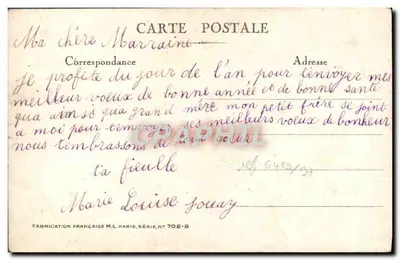 CARTE POSTALE
Ma chère Marraine
Correspondance
Adresse
je profite du jour de l'an pour t'envoyer mes
meilleur voeux de bonne année et de bonne santé
qua grand mère mon petit frère se joint
a moi pour tenvoyer ses meilleurs voeux de bonheur
nous tembrassons de coeur
ta fieulle
Marie Louise Jouay
FABRICATION FRANÇAISE M.L. PARIS, SÉRIE, Nº 702-B